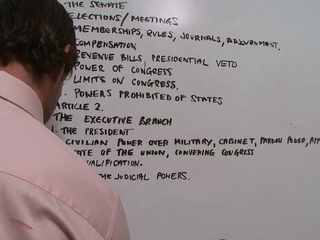 THE SENATE
ELECTIONS/MEETINGS
MEMBERSHIPS, RULES, JOURNALS, ADJOURNMENT.
COMPENSATION
REVENUE BILLS, PRESIDENTIAL VETO
POWER OF CONGRESS
LIMITS ON CONGRESS.
. POWERS PROHIBITED OF STATES
ARTICLE 2.
THE EXECUTIVE BRANCH
1. THE PRESIDENT
CIVILIAN POWER OVER MILITARY, CABINET, PARDON POWER, APP
OF THE UNION, CONVENING CONGRESS
THE JUDICIAL POWERS.